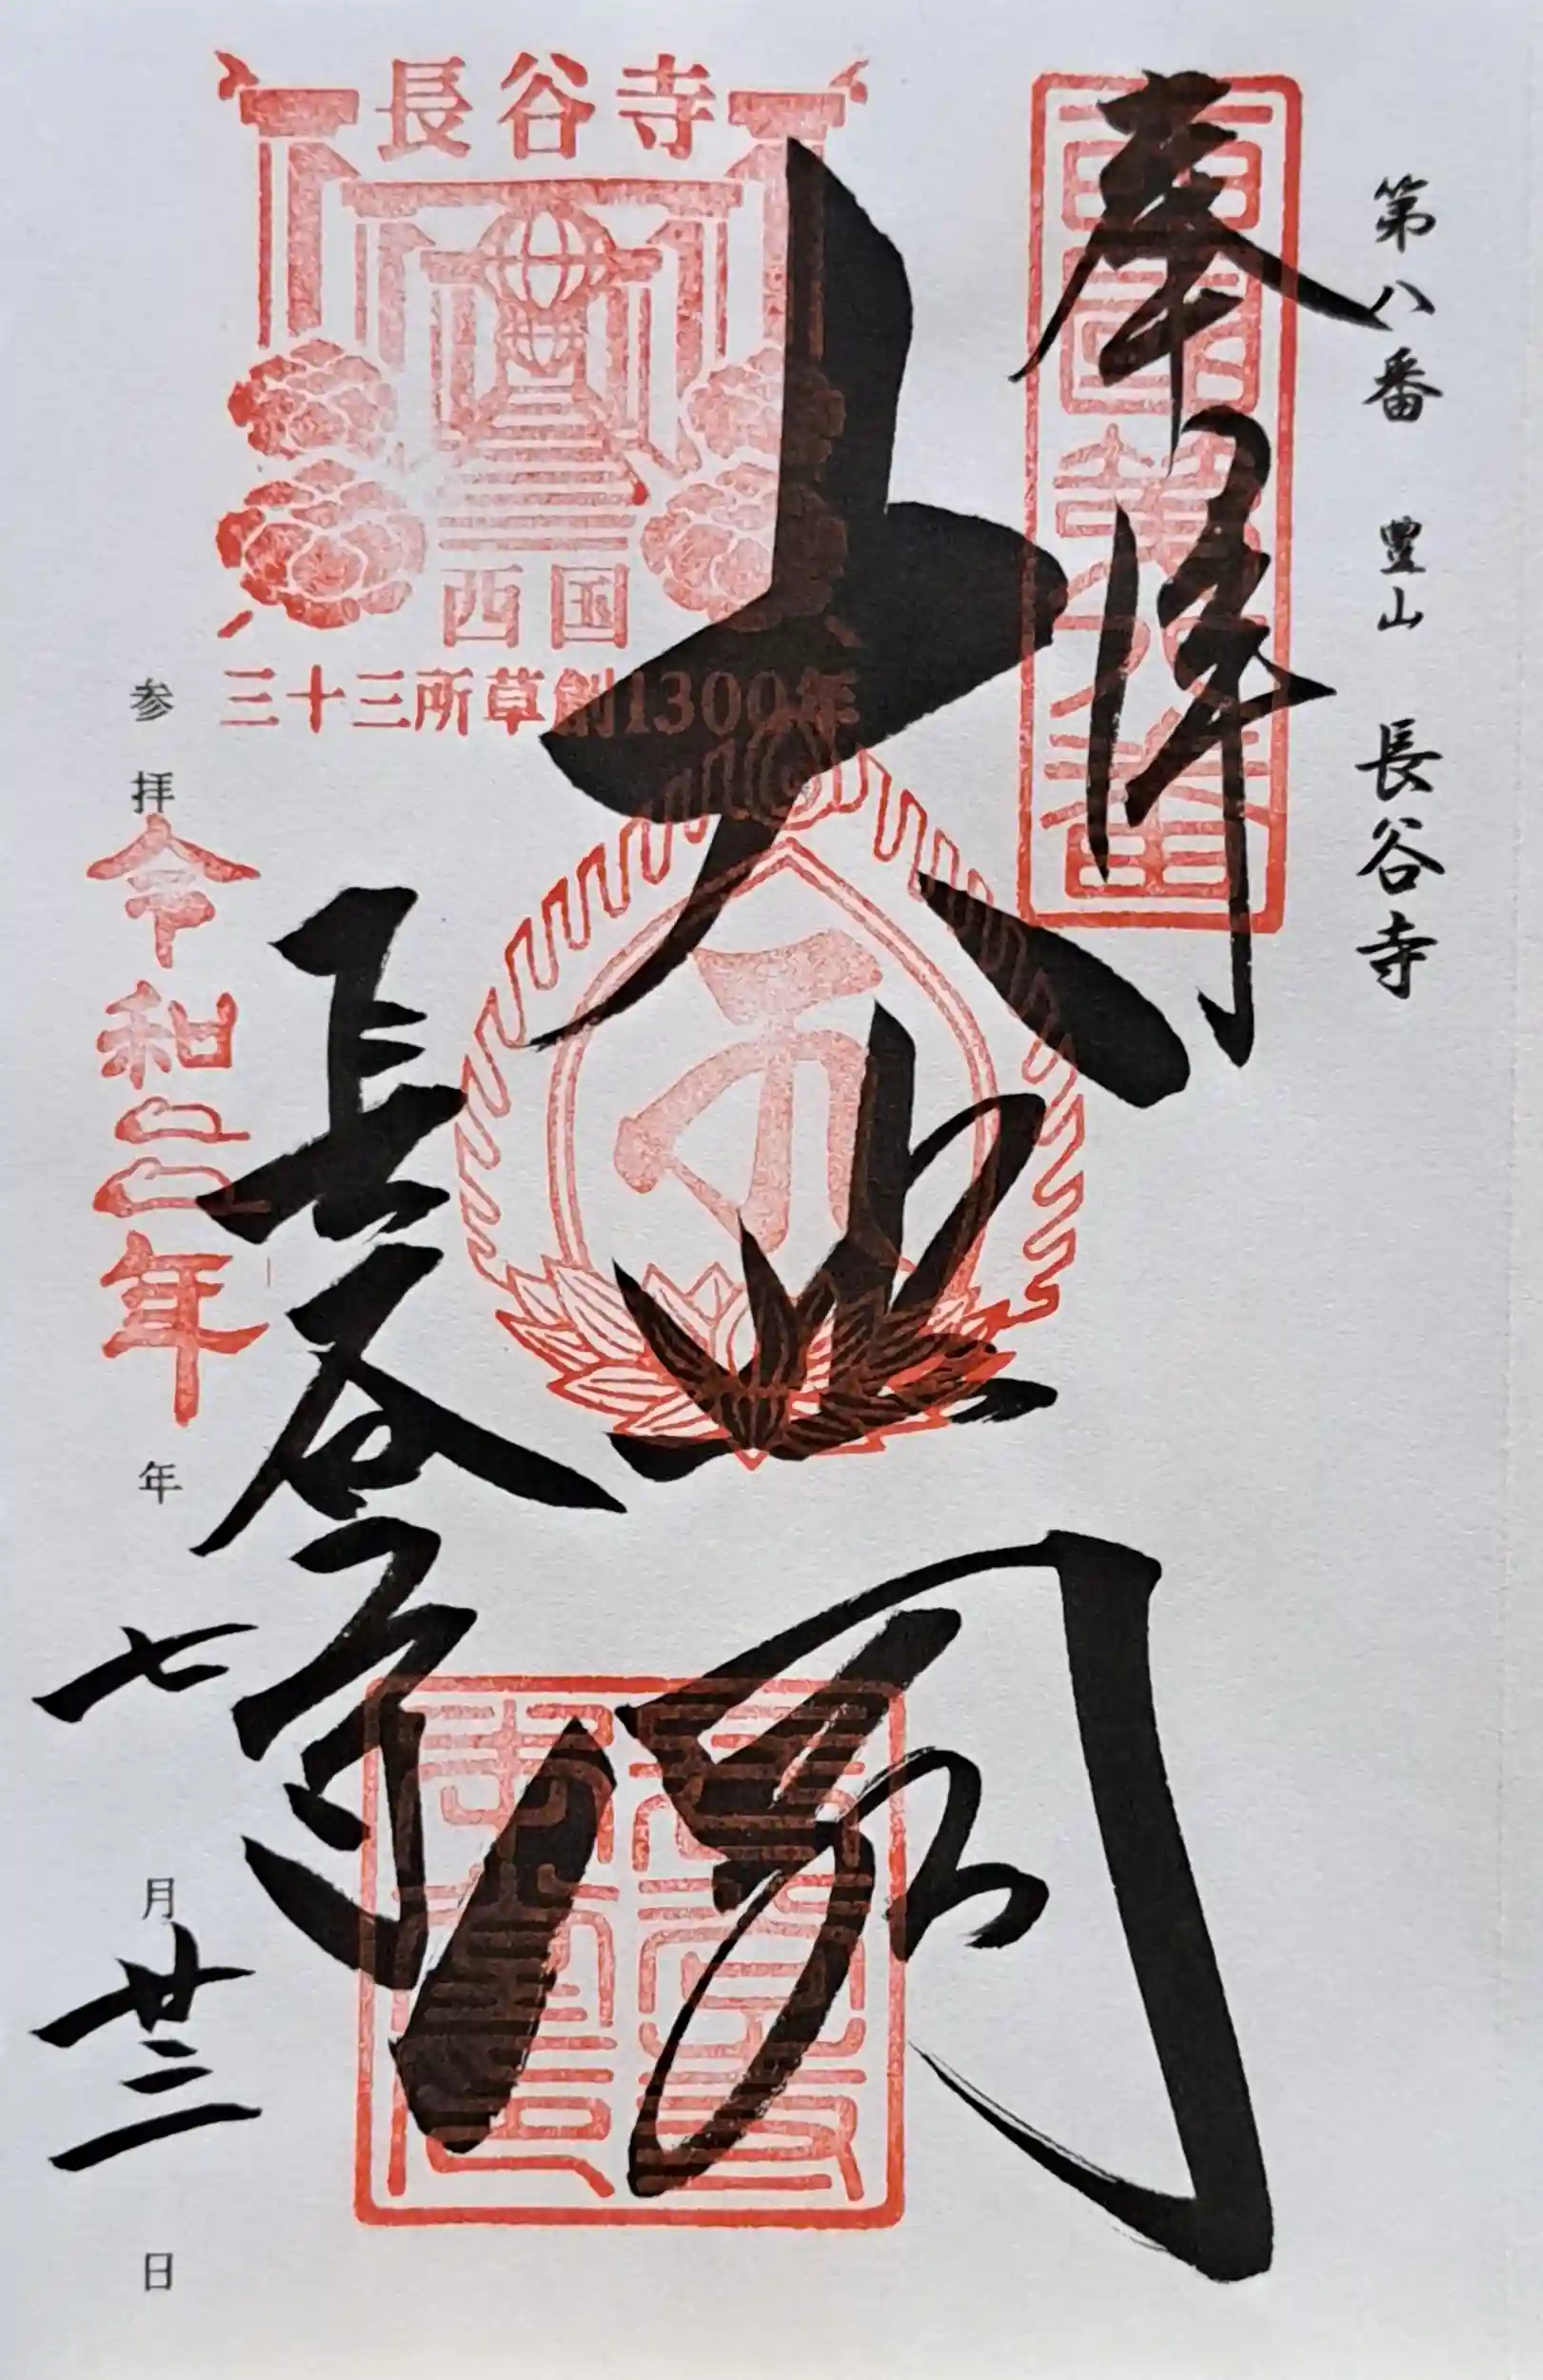 第八番 豊山 長谷寺
奉拝
西國第八番
大悲閣
長谷寺
西国
三十三所草創1300年
長谷寺
参拝令和二年年七月廿三日